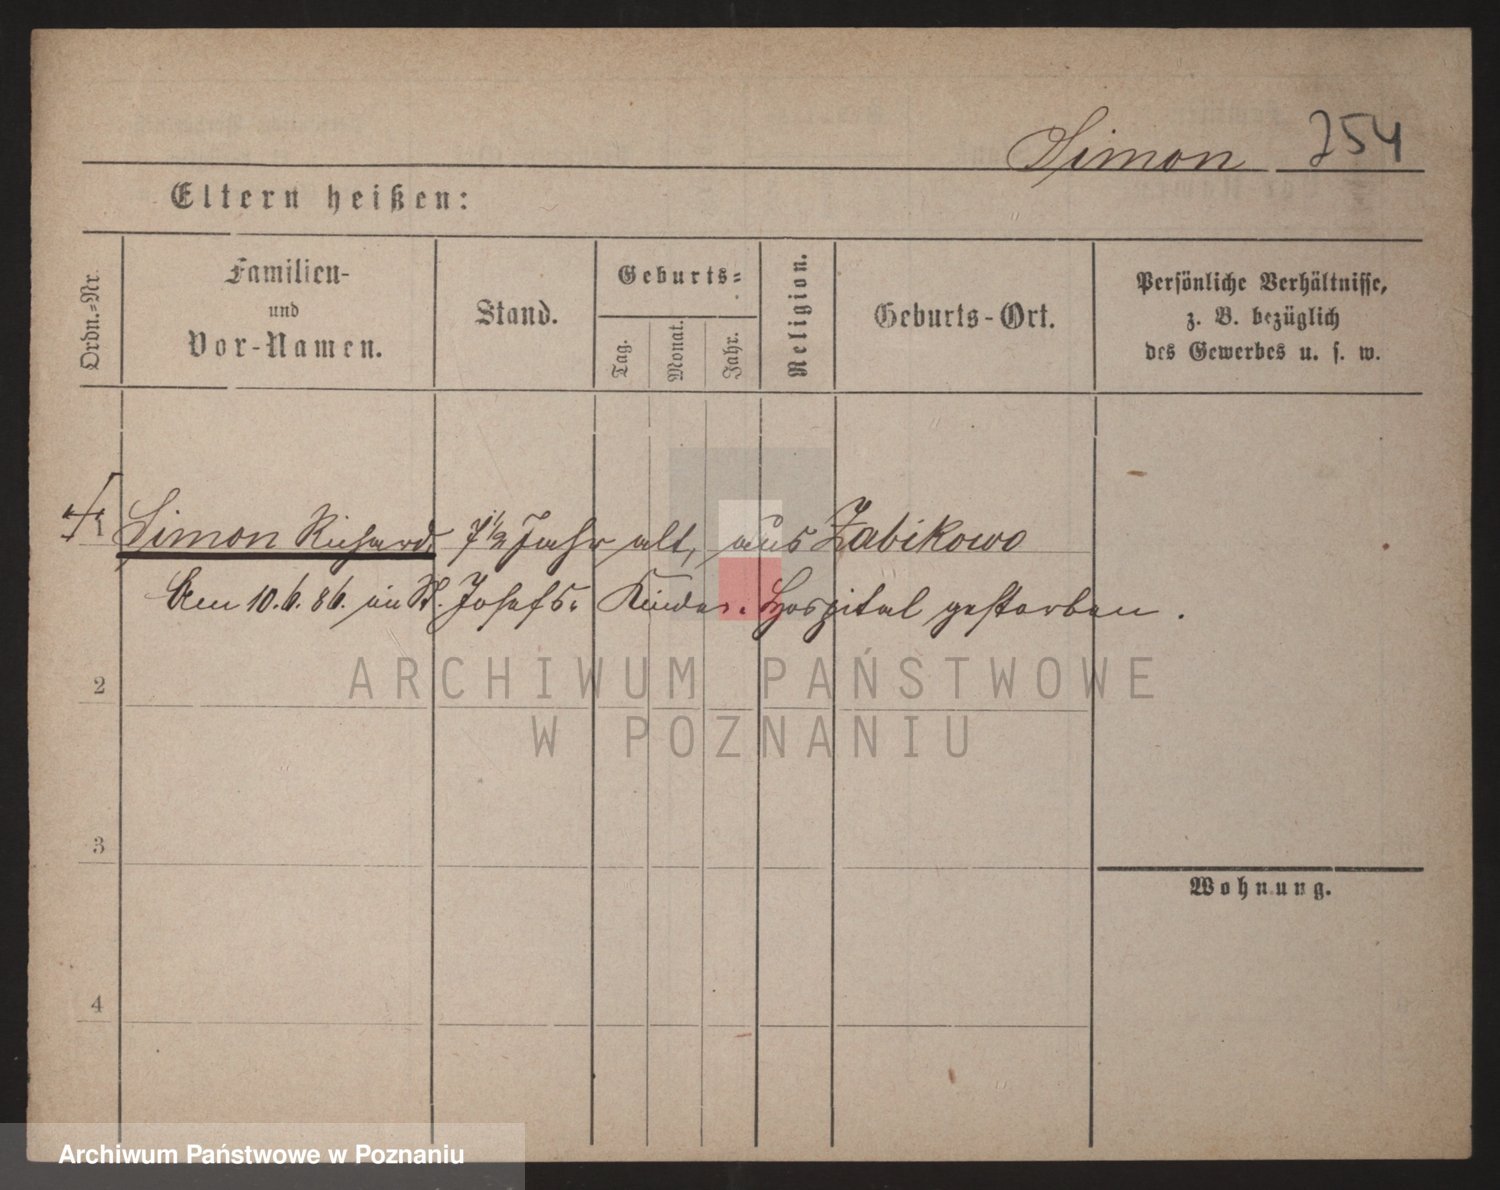 Simon 254
Eltern heißen:
Ordn.=Nr.
Familien-
und
Vor-Namen.
Stand.
Geburts=
Tag.
Monat.
Jahr.
Religion.
Geburts-Ort.
Persönliche Verhältnisse,
z. B. bezüglich
des Gewerbes u. s. w.
1 Simon Richard 7 1/2 Jahr alt, aus Zabikowo
Am 10.6.86. im St. Josefs. Kinder. Hospital gestorben.
2
3
Wohnung.
4
ARCHIWUM PAŃSTWOWE
W POZNANIU
Archiwum Państwowe w Poznaniu